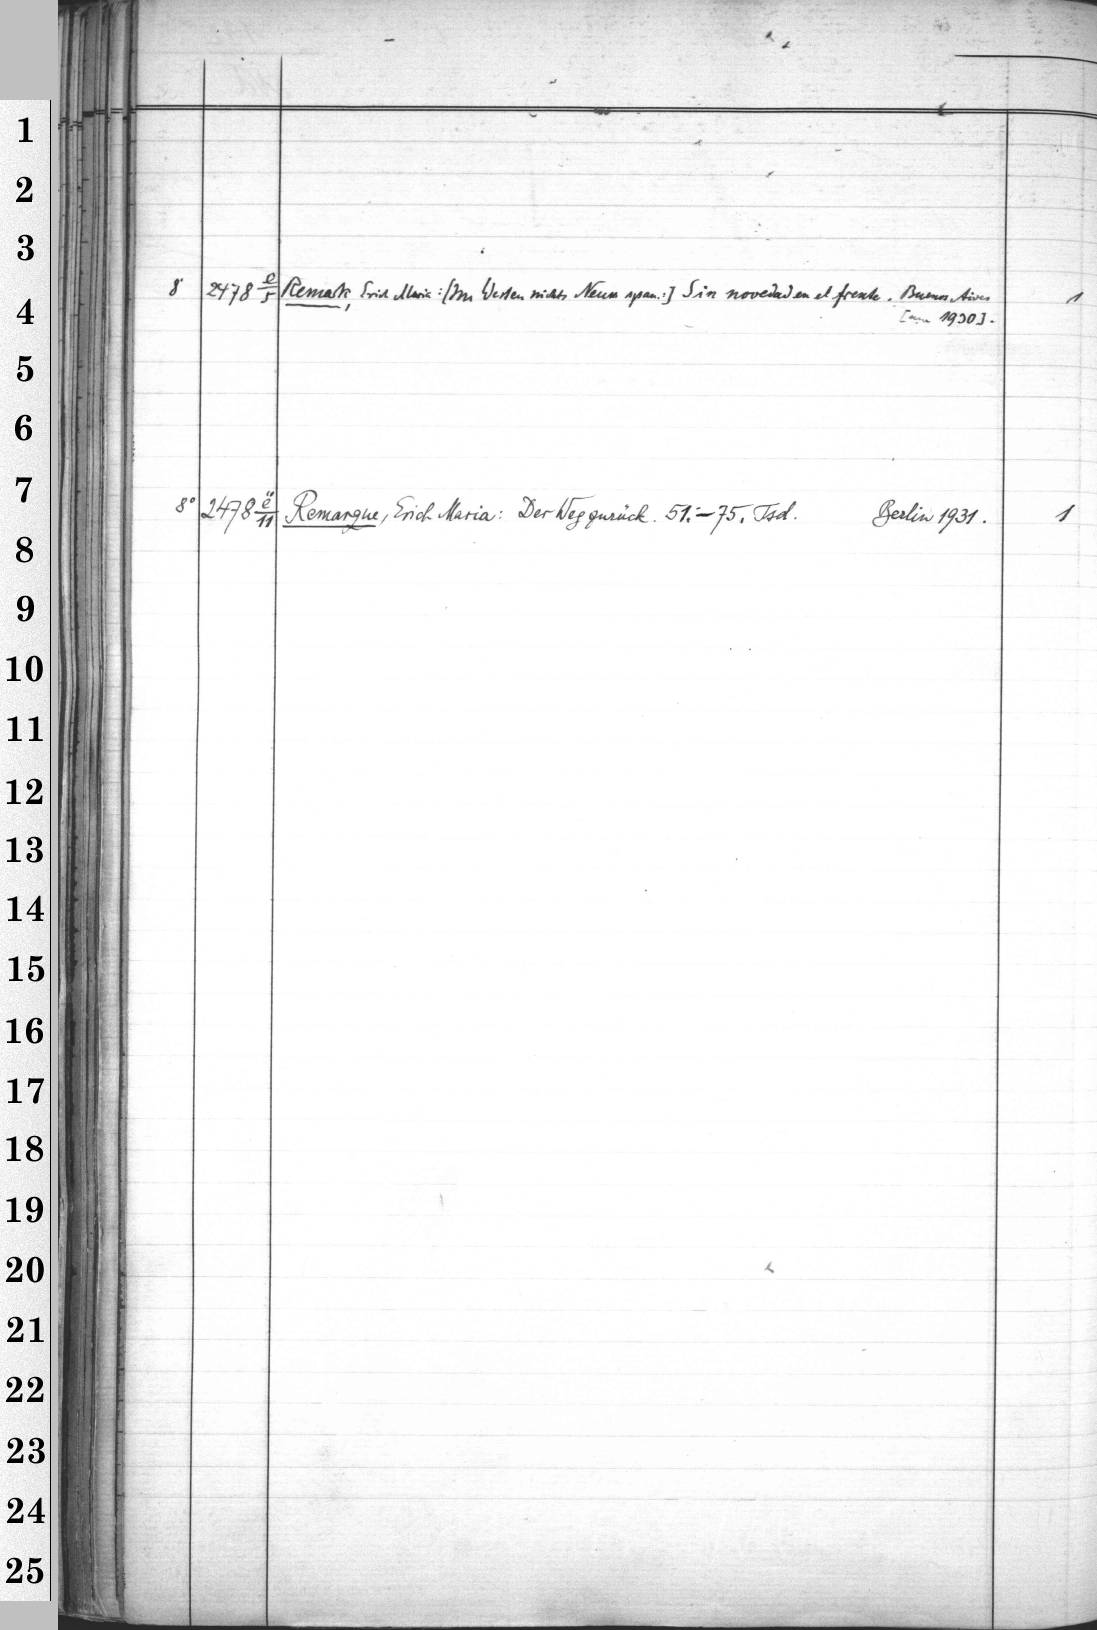 1
2
3
8° 2478 e/5 Remark, Erich Maria: [Im Westen nichts Neues span.:] Sin novedad en el frente. Buenos Aires 1
4
1930].
5
6
7
8° 2478 ë/11 Remarque, Erich Maria: Der Weg zurück. 51.-75. Tsd. Berlin 1931. 1
8
9
10
11
12
13
14
15
16
17
18
19
20
21
22
23
24
25